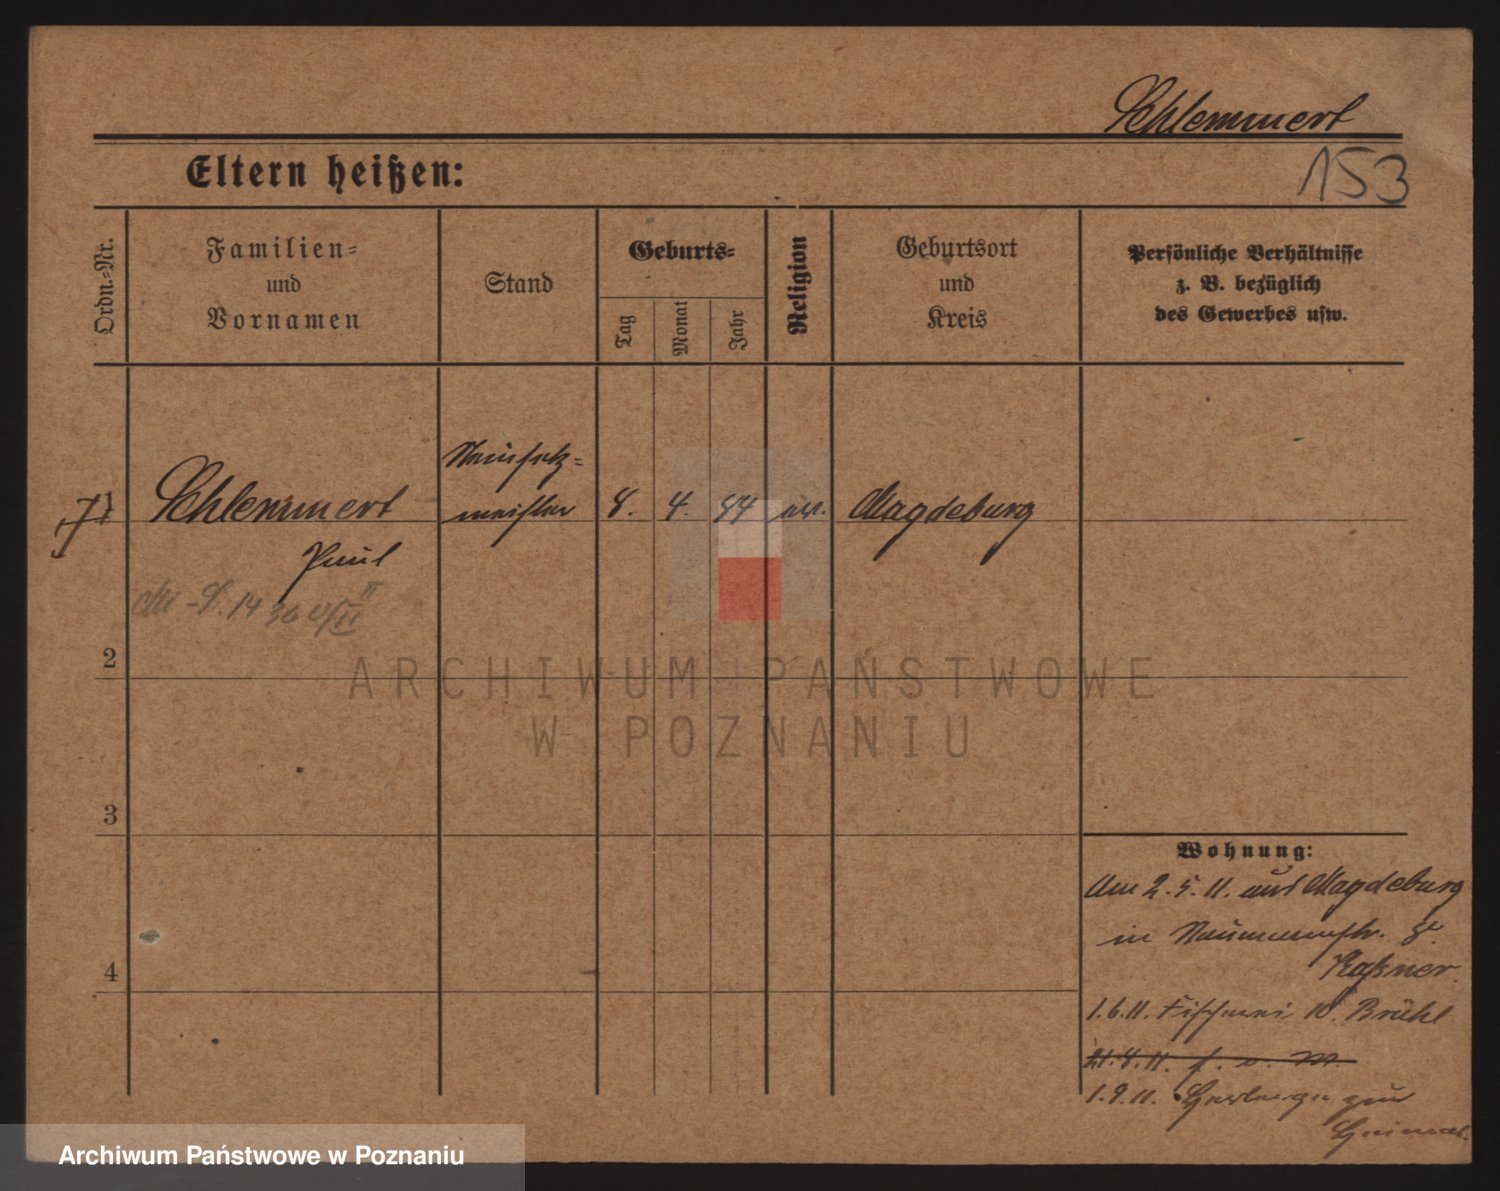 Schlemmert
153
Eltern heißen:
Ordn.-Nr.
Familien-
und
Vornamen
Stand
Geburts-
Tag
Monat
Jahr
Religion
Geburtsort
und
Kreis
Persönliche Verhältnisse
z. B. bezüglich
des Gewerbes usw.
1
Schlemmert
Paul
Steinsetz-
meister
8. 4. 84 ev. Magdeburg
2
3
4
ARCHIWUM PAŃSTWOWE
W POZNANIU
Wohnung:
Am 2.5.11. aus Magdeburg
in Naumannstr.
Kaßner
1.6.11. Fischerei 10. Brühl
1.9.11. Herberge zur
Heimat.
Archiwum Państwowe w Poznaniu